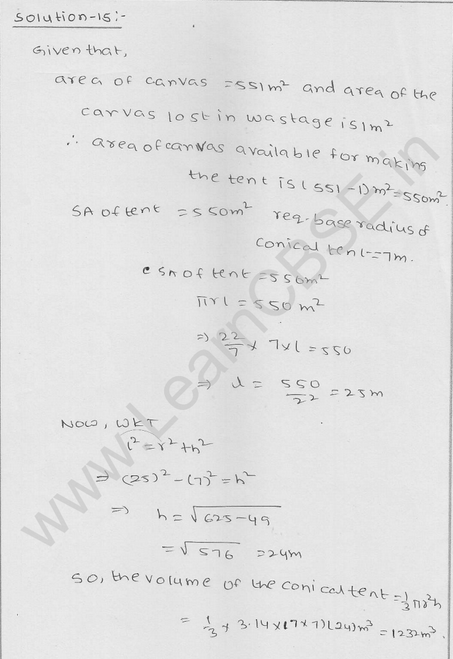 Solution-15:-
Given that,
area of canvas = 551m² and area of the
canvas lost in wastage is 1m²
∴ area of canvas available for making
the tent is (551-1)m² = 550m².
SA of tent = 550m² req. base radius of
conical tent = 7m.
CSA of tent = 550m²
πrl = 550 m²
⇒ 22/7 × 7 × l = 550
⇒ l = 550/22 = 25m
Now, WKT
l² = r² + h²
⇒ (25)² - (7)² = h²
⇒ h = √625-49
= √576 = 24m
So, the volume of the conical tent = 1/3 πr²h
= 1/3 × 3.14 × (7×7)(24)m³ = 1232m³.
www.LearnCBSE.in